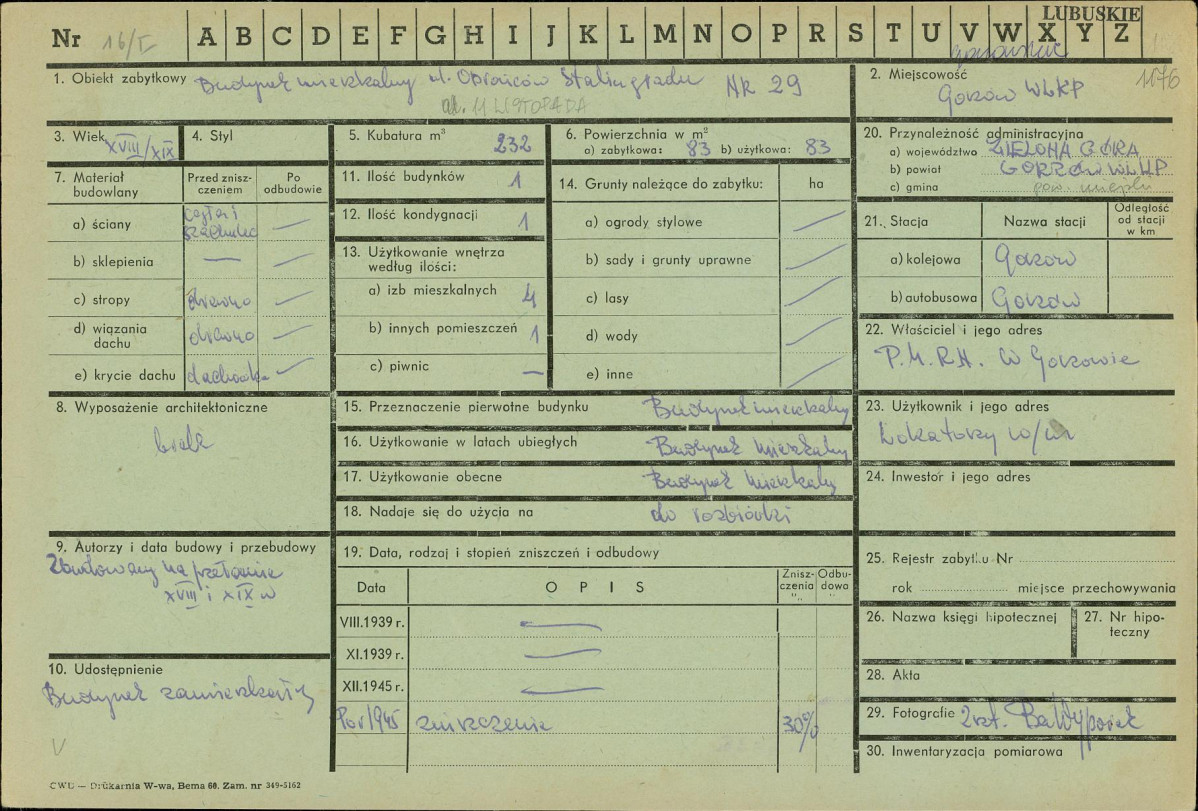 LUBUSKIE
Nr 16/I A B C D E F G H I J K L M N O P R S T U V W X Y Z
1. Obiekt zabytkowy Budynek mieszkalny ul. Obrońców Stalingradu NR 29
ul. 11 LISTOPADA
2. Miejscowość
Gorzów WLKP
1176
3. Wiek XVIII/XIX
4. Styl
5. Kubatura m³ 232
6. Powierzchnia w m²
a) zabytkowa: 83 b) użytkowa: 83
20. Przynależność administracyjna
a) województwo ZIELONA GÓRA
b) powiat GORZÓW WLKP
c) gmina pow. miejski
7. Materiał budowlany
Przed zniszczeniem
Po odbudowie
a) ściany cegła i szachulec —
b) sklepienia — —
c) stropy drewno —
d) wiązania dachu drewno —
e) krycie dachu dachówka —
11. Ilość budynków 1
12. Ilość kondygnacji 1
13. Użytkowanie wnętrza
według ilości:
a) izb mieszkalnych 4
b) innych pomieszczeń 1
c) piwnic —
14. Grunty należące do zabytku: ha
a) ogrody stylowe —
b) sady i grunty uprawne —
c) lasy —
d) wody —
e) inne —
21. Stacja Nazwa stacji Odległość od stacji w km
a) kolejowa Gorzów
b) autobusowa Gorzów
22. Właściciel i jego adres
P.M.R.N. w Gorzowie
8. Wyposażenie architektoniczne
brak
15. Przeznaczenie pierwotne budynku Budynek mieszkalny
16. Użytkowanie w latach ubiegłych Budynek mieszkalny
17. Użytkowanie obecne Budynek mieszkalny
18. Nadaje się do użycia na do rozbiórki
23. Użytkownik i jego adres
Lokatorzy w/m
24. Inwestor i jego adres
9. Autorzy i data budowy i przebudowy
Zbudowany na przełomie
XVIII i XIX w
19. Data, rodzaj i stopień zniszczeń i odbudowy
Data O P I S Zniszczenia "„ Odbudowa "„
VIII.1939 r. —
XI.1939 r. —
XII.1945 r. —
Po r 1945 zniszczenie 30%
25. Rejestr zabytku Nr
rok miejsce przechowywania
26. Nazwa księgi hipotecznej
27. Nr hipoteczny
10. Udostępnienie
Budynek zamieszkały
28. Akta
29. Fotografie 2 szt.
30. Inwentaryzacja pomiarowa
V
CWD — Drukarnia W-wa, Bema 60. Zam. nr 349-5162